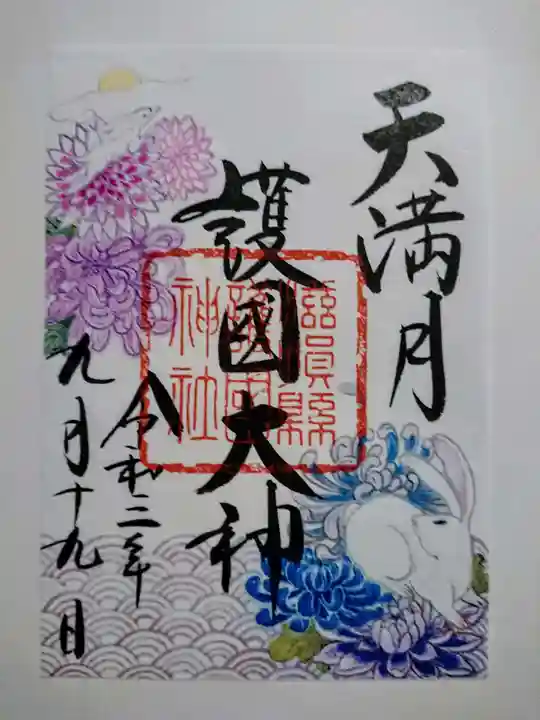 天満月
護國大神
滋賀縣
護國
神社
令和三年
九月十九日